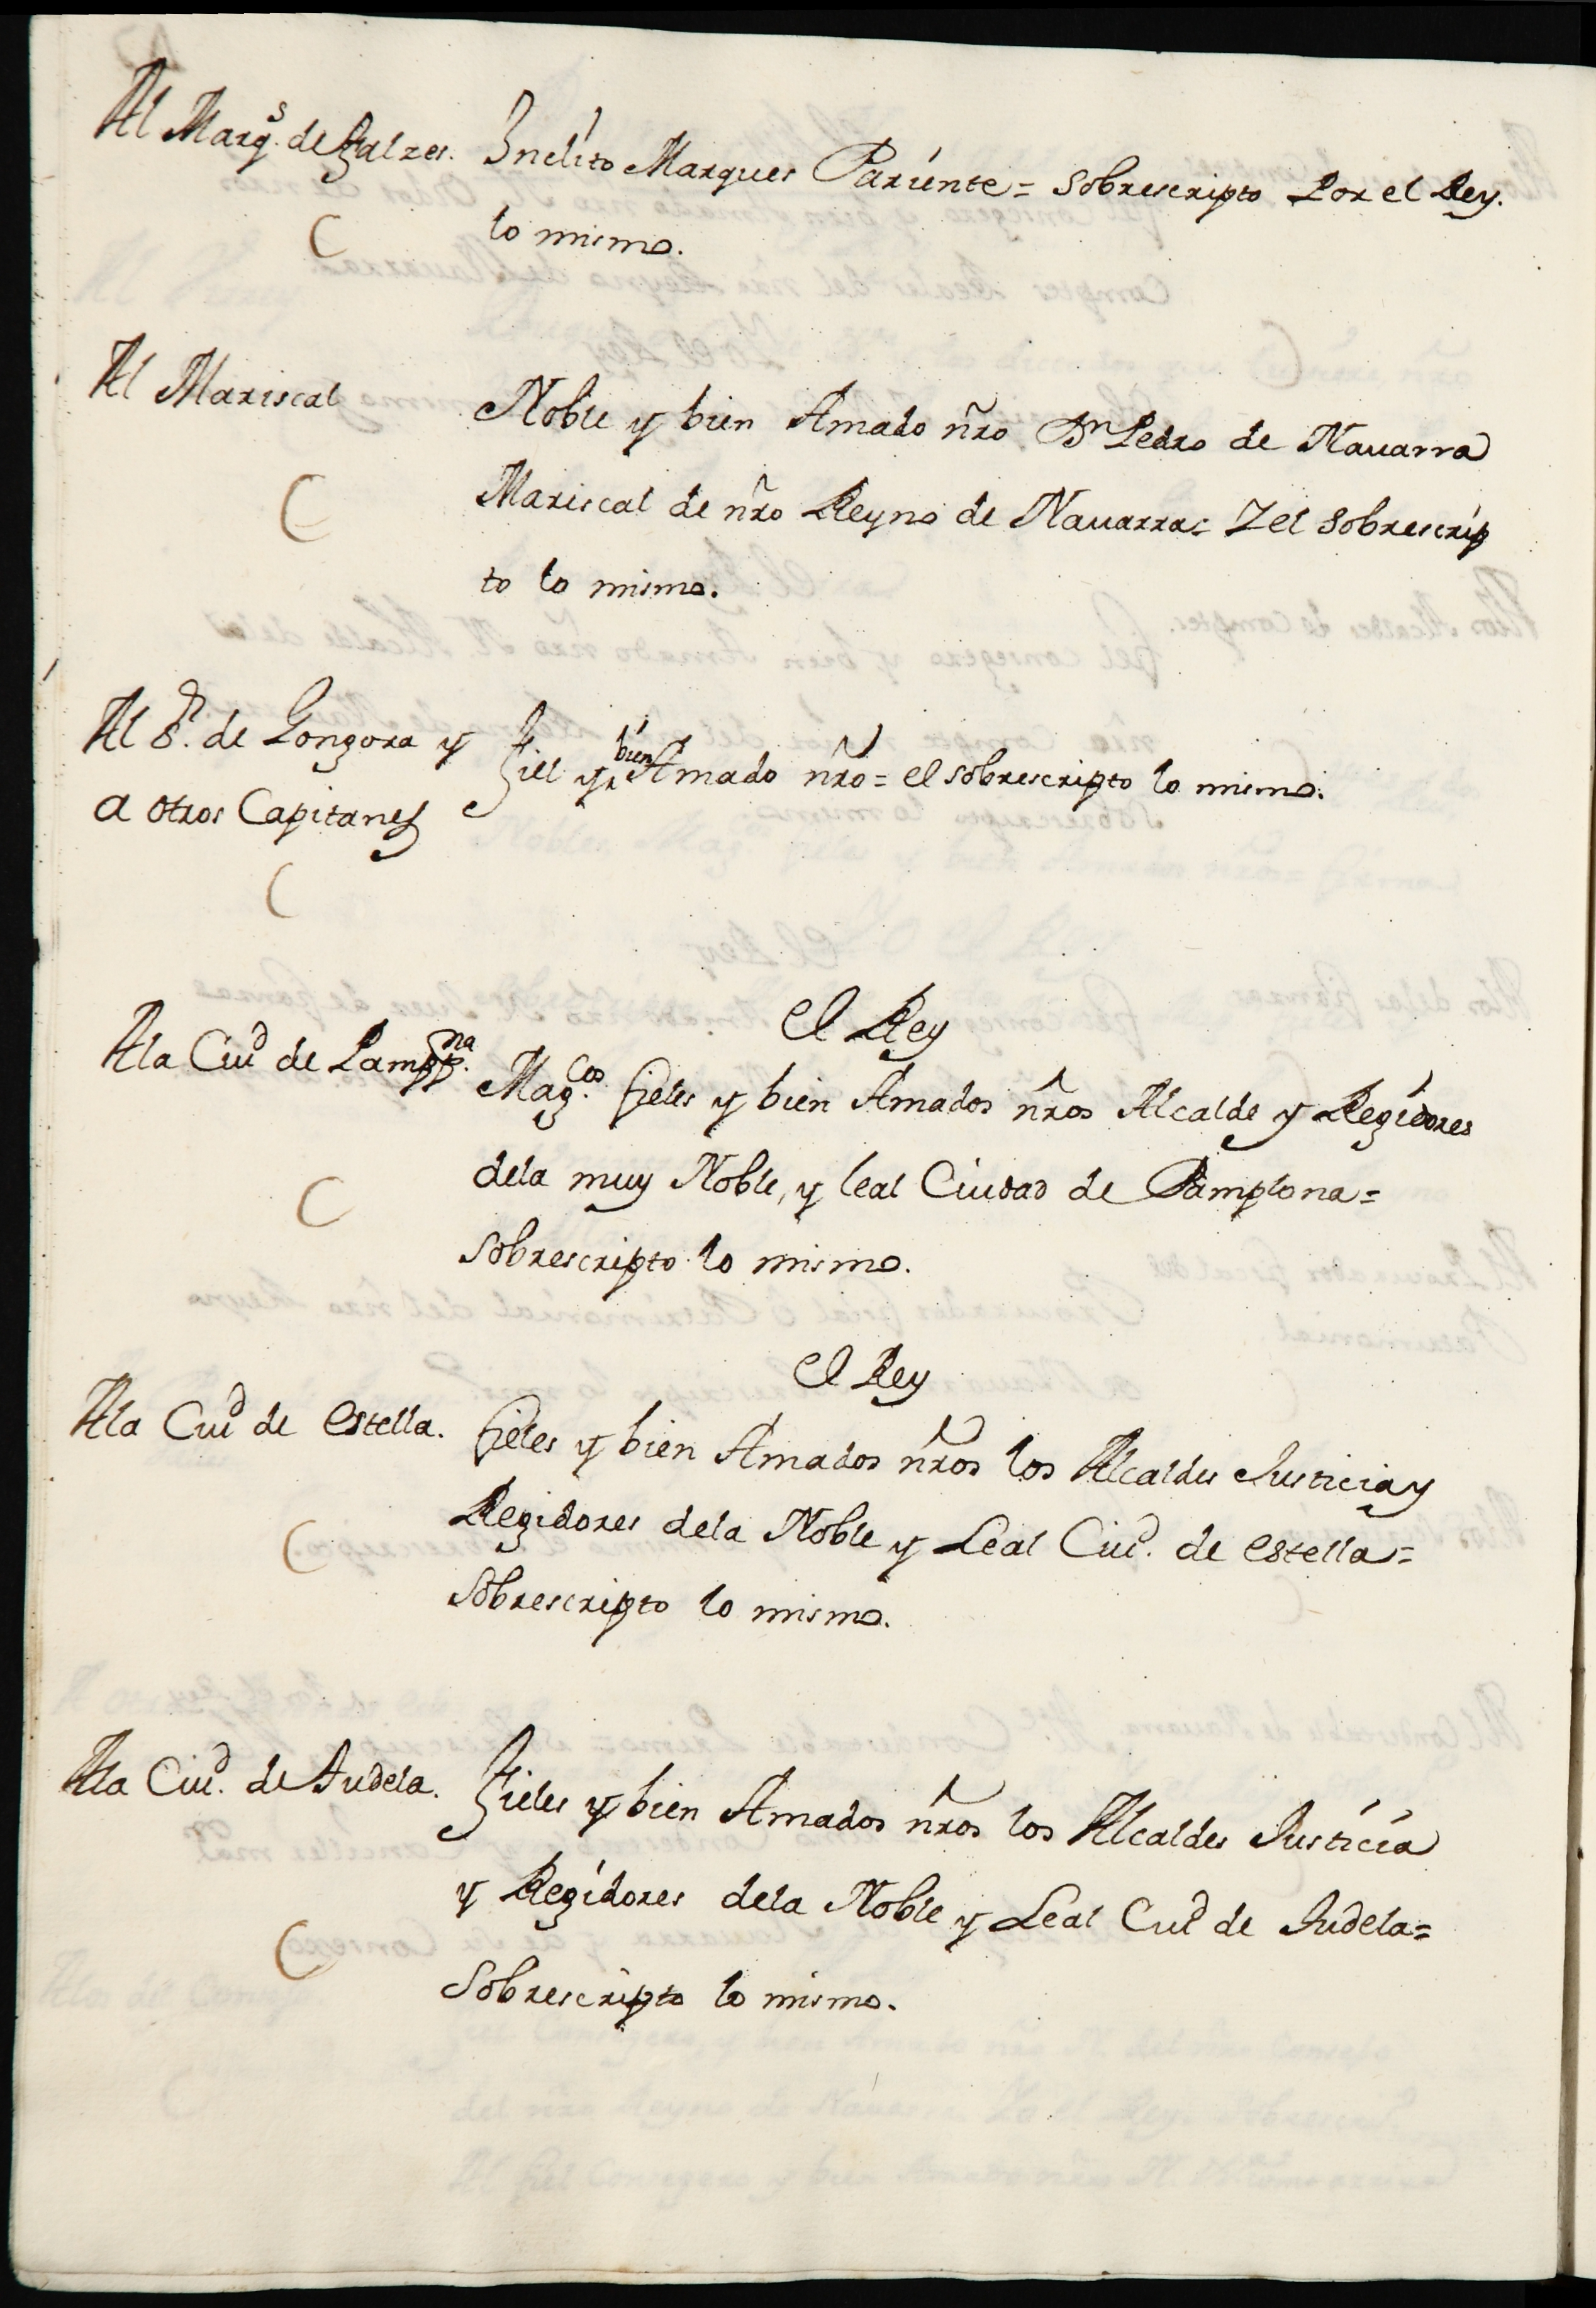 Al Marq.s de Falzes. Inclito Marques Pariente = Sobrescripto Por el Rey.
lo mismo.
Al Mariscal Noble y bien Amado nro Dn Pedro de Nauarra
Mariscal de nro Reyno de Nauarra = Y el Sobrescrip
to lo mismo.
Al S.r de Gongora y
a otros Capitanes
Fiel y bien Amado nro = el sobrescripto lo mismo.
El Rey
Ala Ciud de Pamp.na Mag.cos fieles y bien Amados nros Alcalde y Regidores
dela muy Noble, y leal Ciudad de Pamplona =
Sobrescripto lo mismo.
El Rey
Ala Ciud de Estella. fieles y bien Amados nros los Alcaldes Justicia y
Regidores dela Noble y Leal Ciud. de Estella =
Sobrescripto lo mismo.
Ala Ciud. de Tudela. Fieles y bien Amados nros los Alcaldes Justicia
y Regidores dela Noble y Leal Ciud de Tudela =
Sobrescripto lo mismo.